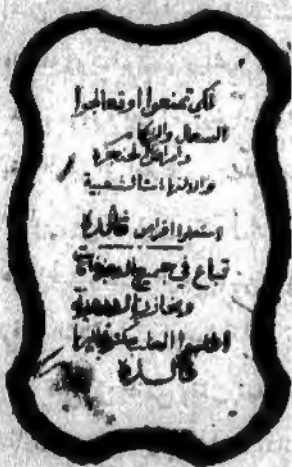 لكي تمنعوا او تعالجوا
السعال والزكام
وامراض الحنجرة
والالتهابات الشعبية
استعملوا اقراص فالدا
تباع في جميع الصيدليات
ومخازن الادوية
اطلبوا العلب
فالدا